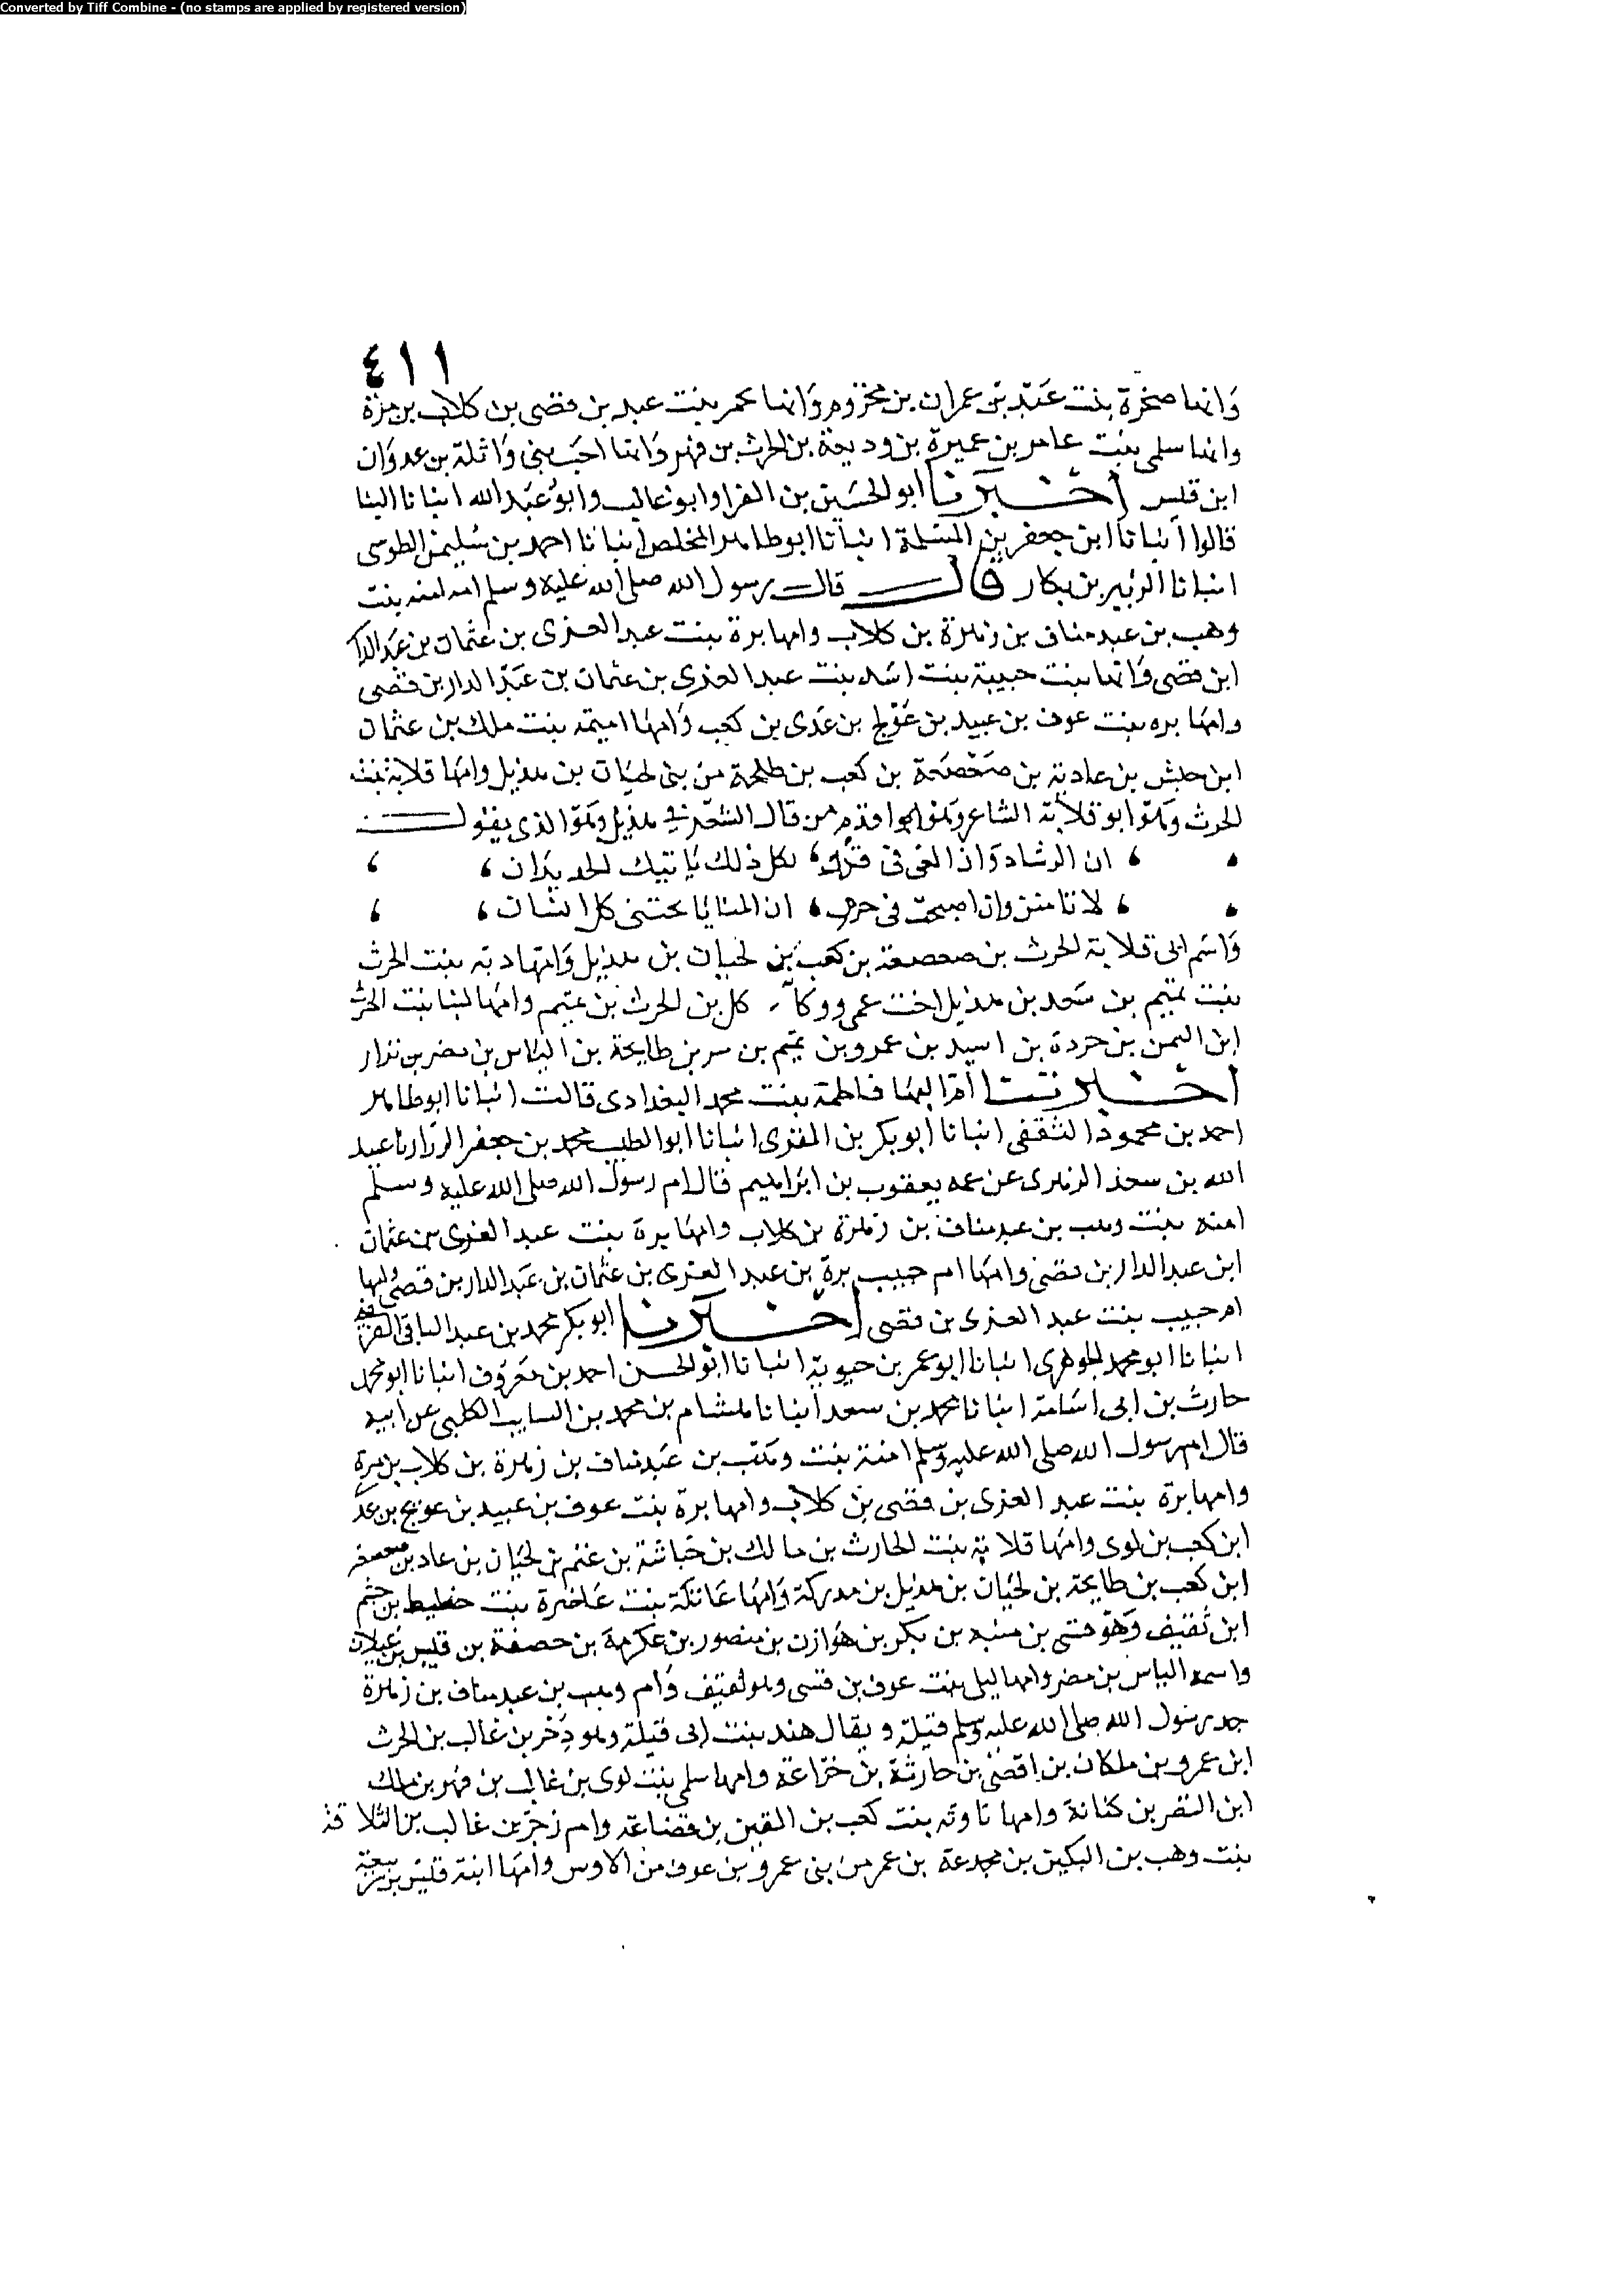 Converted by Tiff Combine - (no stamps are applied by registered version)
٤١١
وامها صخرة بنت عبد بن عمران بن مخزوم وامها تخمر بنت عبد بن قصى بن كلاب بن مرة
وامها سلمى بنت عامر بن عميرة بن وديعة بن الحرث بن فهر وامها احب بنى واثلة بن عدوان
ابن قيس اخبرنا ابو الحسين بن الفرا وابو غالب وابو عبد الله انبانا البنا
قالوا انبانا ابن جعفر بن المسلمة انبانا ابو طاهر المخلص انبانا احمد بن سليمن الطوسى
انبانا الزبير بن بكار قال قال رسول الله صلى الله عليه وسلم امه امنه بنت
وهب بن عبد مناف بن زهرة بن كلاب وامها برة بنت عبد العزى بن عثمان بن عبد الدار
ابن قصى وامها بنت حبيبة بنت اسد بنت عبد العزى بن عثمان بن عبد الدار بن قصى
وامها بره بنت عوف بن عبيد بن عويج بن عدى بن كعب وامها اميمه بنت ملك بن عثمان
ابن حبش بن عادية بن صعصعة بن كعب بن طلحة من بنى لحيان بن هذيل وامها قلابة بنت
الحرث وهو ابو قلابة الشاعر وهو اقدم من قال الشعر في هذيل وهو الذى يقول
ان الرشاد وان الغى فى قرن ، لكل ذلك ياتيك الجديدان ،
لا تامنن وان اصبحت فى حرم ، ان المنايا بجنبى كل انسان ،
واسم ابى قلابة الحرث بن صعصعة بن كعب بن لحيان بن هذيل وامها دبه بنت الحرث
بنت تميم بن سعد بن هذيل اخت عمرو وكاهل بن الحرث بن تميم وامها لبنا بنت الحرث
ابن اليمن بن حردة بن اسيد بن عمرو بن تميم بن مر بن طابخة بن الياس بن مضر بن نزار
اخبرتنا ام البها فاطمة بنت محمد البغدادى قالت انبانا ابو طاهر
احمد بن محمود الثقفى انبانا ابو بكر بن المقرى انبانا ابو الطيب محمد بن جعفر الزراد نا عبيد
الله بن سعد الزهرى عن عمه يعقوب بن ابراهيم قال ام رسول الله صلى الله عليه وسلم
امنه بنت وهب بن عبد مناف بن زهرة بن كلاب وامها برة بنت عبد العزى بن عثمان
ابن عبد الدار بن قصى وامها ام حبيب برة بن عبد العزى بن عثمان بن عبد الدار بن قصى وامها
ام حبيب بنت عبد العزى بن قصى اخبرنا ابو بكر محمد بن عبد الباقى الفرضى
انبانا ابو محمد الجوهرى انبانا ابو عمر بن حيوية انبانا ابو الحسن احمد بن معروف انبانا ابو محمد
حارث بن ابى اسامة انبانا محمد بن سعد انبانا هشام بن محمد بن السايب الكلبى عن ابيه
قال ام رسول الله صلى الله عليه وسلم امنة بنت وهب بن عبد مناف بن زهرة بن كلاب بن مرة
وامها برة بنت عبد العزى بن قصى بن كلاب وامها برة بنت عوف بن عبيد بن عويج بن عدى
ابن كعب بن لوى وامها قلابة بنت الحارث بن مالك بن حباشة بن غنم بن لحيان بن عاد بن صعصعة
ابن كعب بن طابخة بن لحيان بن هذيل بن مدركة وامها عاتكة بنت غاضرة بنت حطيط بن جشم
ابن ثقيف وهو قسى بن منبه بن بكر بن هوازن بن منصور بن عكرمة بن خصفة بن قيس بن عيلان
واسمه الياس بن مضر وامها ليلى بنت عوف بن قسى وهو ثقيف وام وهب بن عبد مناف بن زهرة
جد رسول الله صلى الله عليه وسلم قيلة ويقال هند بنت ابى قيلة وهو وجز بن غالب بن الحرث
ابن عمرو بن ملكان بن افصى بن حارثة بن خزاعة وامها سلمى بنت لوى بن غالب بن فهر بن ملك
ابن النضر بن كنانة وامها ماوية بنت كعب بن القين بن قضاعة وام وجز بن غالب بن السلافة
بنت وهب بن البكير بن مجدعة بن عمر من بنى عمرو بن عوف من الاوس وامها ابنة قيس بن ربيعة